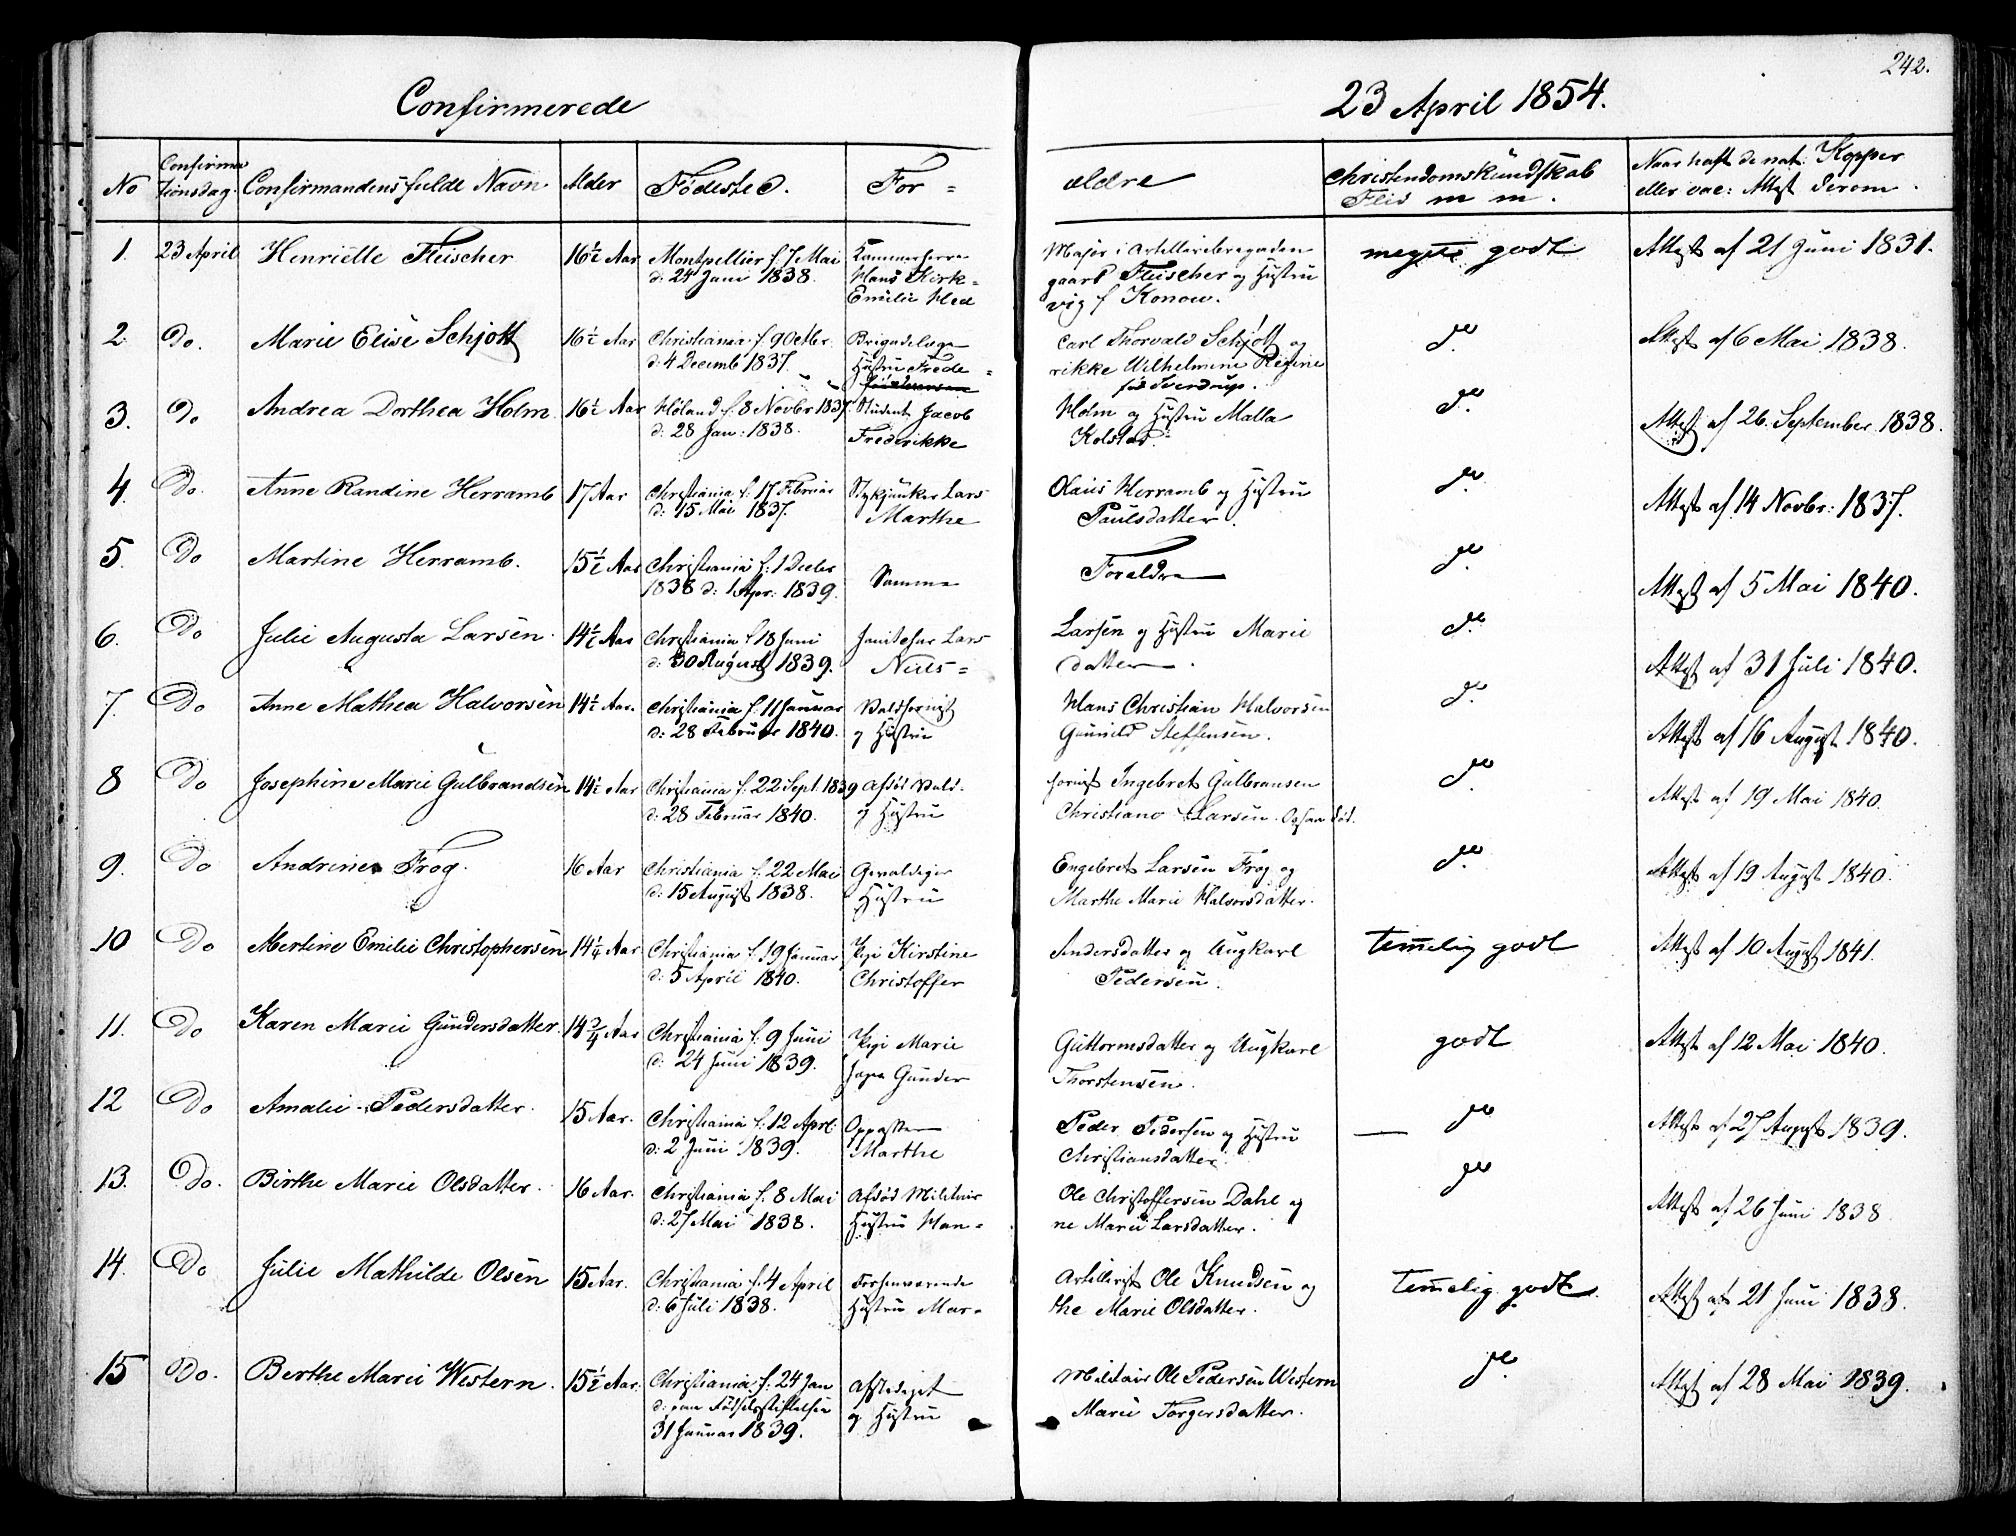 242.
Confirmerede 23 April 1854.
No Confirma tionsdag. Confirmandens fulde Navn Alder Födested. For= ældre Christendomskundskab Flid m m. Naar haft de nat: Kopper eller vac: Attest derom.
1. 23 April Henriette Fleischer 16½ Aar Montpellier f. 7 Mai Kammerherre Major i Artilleribrigaden meget godt Attest af 21 Juni 1831.
d: 24 Juni 1838. Hans Kirk= gaard Fleischer og Hustru
Emilie Hed vig f Konow.
2. Do. Marie Elise Schjött 16½ Aar Christiania f. 9 Octbr. Brigadelæge Carl Thorvald Schjött og do Attest af 6 Mai 1838.
d: 4 Decemb 1837. Hustru Frede= rikke Wilhelmine Regine
fød Sverdrup.
3. Do Andrea Dorthea Holm 16½ Aar Høland f. 8 Novbr 1837. Student Jacob Holm og Hustru Malla do Attest af 26. September 1838.
d: 28 Jan: 1838. Frederikke Kolstad.
4. Do. Anne Randine Herramb 17 Aar Christiania f. 17 Februar Stykjunker Lars Olaus Herramb og Hustru do Attest af 14 Novbr: 1837.
d: 15 Mai 1837. Marthe Paulsdatter.
5. Do Martine Herramb. 15½ Aar Christiania f. 1 Decbr Samme Foreldre do Attest af 5 Mai 1840.
1838 d: 1 Apr: 1839.
6. Do Julie Augusta Larsen. 14½ Aar Christiania f. 18 Juni Janitchar Lars Larsen og Hustru Marie do Attest af 31 Juli 1840.
d: 30 August 1839. Niels= datter.
7. Do Anne Mathea Halvorsen 14½ Aar. Christiania f. 11 Januar Valdhornist Hans Christian Halvorsen do Attest af 16 August 1840.
d: 28 Februar 1840. og Hustru Gunild Steffensen.
8 Do Josephine Marie Gulbrandsen 14½ Aar Christiania f. 22 Sept. 1839 Afdöd Vald- hornist Ingebret Gulbransen do Attest af 19 Mai 1840.
d: 28 Februar 1840. og Hustru Christiane Larsen.
9. Do Andrine Frog. 16 Aar Christiania f. 22 Mai Gevaldiger Engebret Larsen Frog og do Attest af 19 August 1840.
d: 15 August 1838. Hustru Marthe Marie Halvorsdatter.
10 Do Mertine Emilie Christophersen 14¼ Aar Christiania f. 19 Januar Pige Kirstine Andersdatter og Ungkarl temmelig godt Attest af 10 August 1841.
d: 5 April 1840. Christoffer Pedersen.
11. Do Karen Marie Gundersdatter. 14¾ Aar Christiania f. 9 Juni Pige Marie Guttormsdatter og Ungkarl godt Attest af 12 Mai 1840.
d: 24 Juni 1839. Gunder Thorstensen.
12 Do Amalie Pedersdatter. 15 Aar. Christiania f. 12 Aprl. Oppasser Peder Pedersen og Hustru do Attest af 27 August 1839.
d: 2 Juni 1839. Marthe Christiansdatter.
13. Do. Birthe Marie Olsdatter. 16 Aar. Christiania f. 8 Mai Afdöd Militair Ole Christoffersen Dahl og do Attest af 26 Juni 1838
d: 27 Mai 1838. Hustru Han= ne Marie Larsdatter.
14. Do Julie Mathilde Olsen 15 Aar. Christiania f. 4 April Forhenværende Artillerist Ole Knudsen og temmelig godt. Attest af 21 Juni 1838.
d: 6 Juli 1838. Hustru Mar= the Marie Olsdatter.
15 Do. Berthe Marie Western. 15½ Aar. Christiania f. 24 Jan Afskediget Militair Ole Pedersen Western do. Attest af 28 Mai 1839.
d: paa Födselsstiftelsen og Hustru Marie Torgersdatter.
31 Januar 1839.